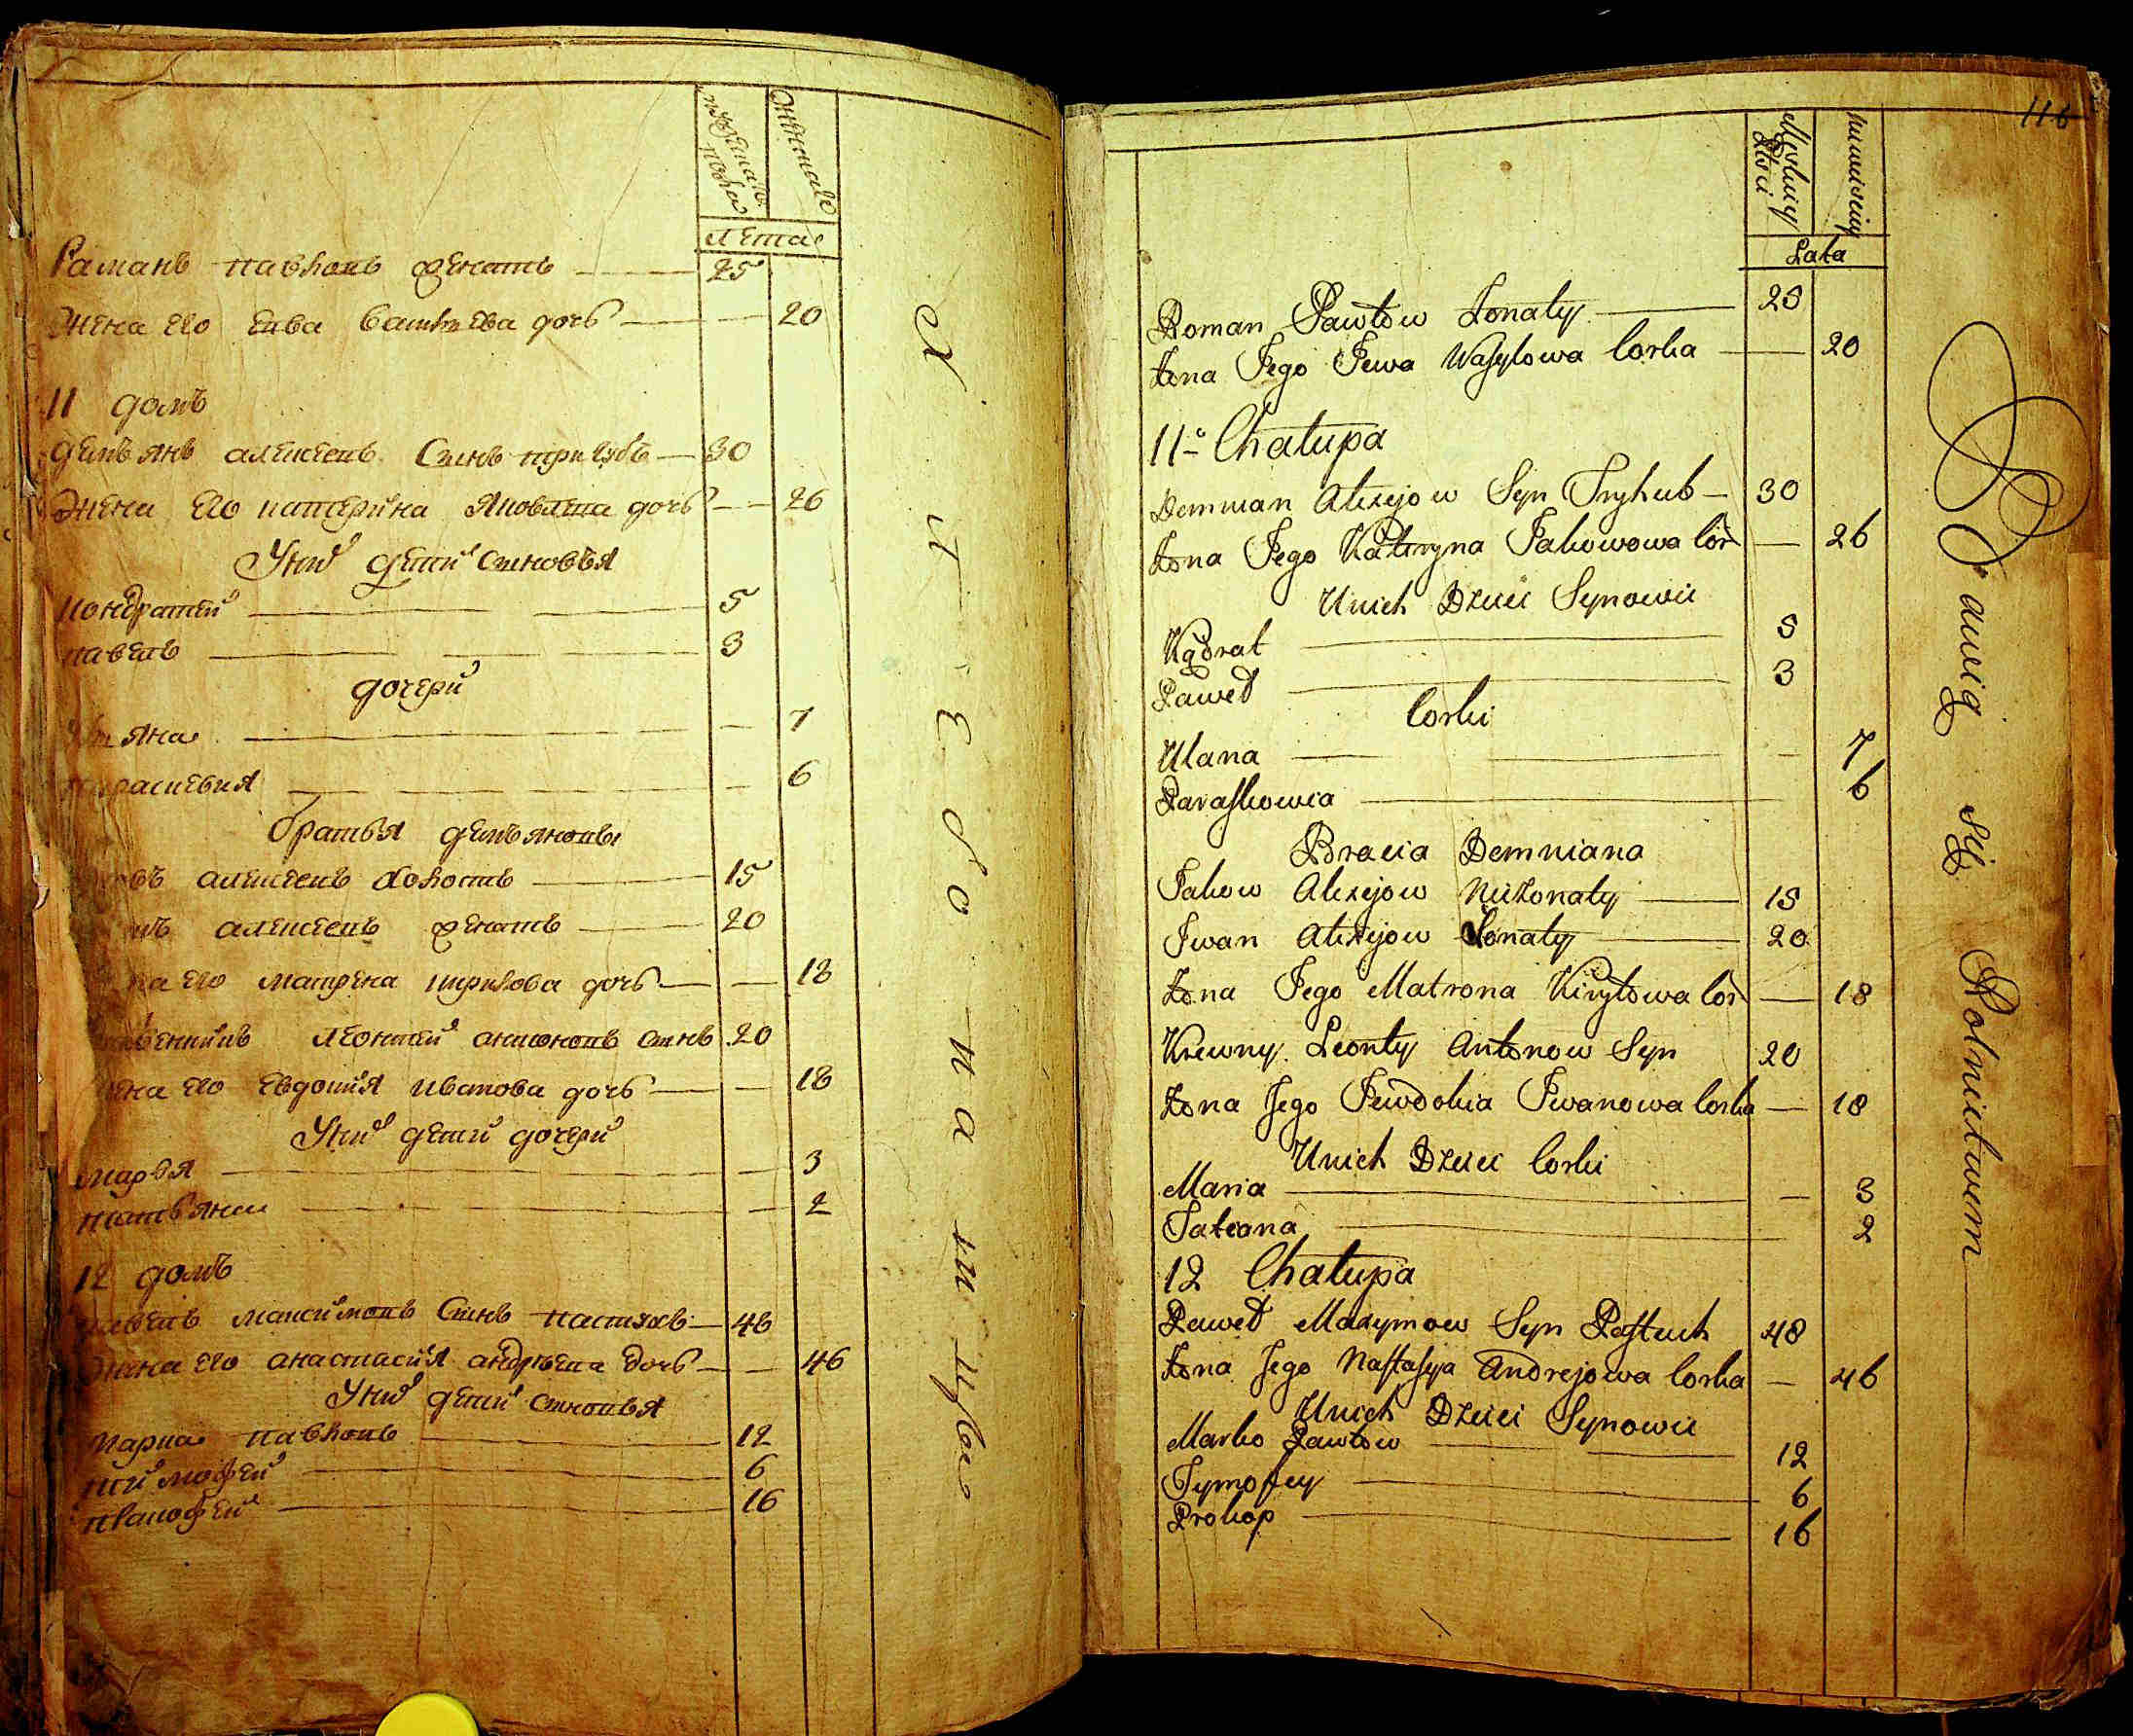 мужеска пола
женска
лета
Раманъ павловъ женатъ 25
Жена его Евва васильева дочь 20
11 домъ
демьянъ алексеевъ Сынъ тригубъ 30
Жена Его катерина Яковлева дочь 26
Унихъ дети сыновья
кондратей 5
павелъ 3
дочери
7
парасковия 6
братья демьяновы
алексеевъ холостъ 15
алексеевъ женатъ 20
его матрена кирилова дочь 18
леонтей антоновъ сынъ 20
его Евдокия иванова дочь 18
Унихъ дети дочери
марья 3
татьяна 2
12 домъ
павелъ максимовъ Сынъ пастухъ 48
Жена его анастасия андреева дочь 46
Унихъ дети сыновья
марка павловъ 12
тимофей 6
16
Хлебопашцы
116
Męskiey Płci
Lata
Roman Pawłow Żonaty 25
Żona Jego Jewa Wasylowa Corka 20
11a Chałupa
Demnian Alexejow Syn Tryhub 30
Żona Jego Kateryna Jakowowa Cor 26
Unich Dzieci Synowie
Kądrat 5
Paweł 3
Corki
Ulana 7
Paraskowia 6
Bracia Demniana
Jakow Alexejow Nieżonaty 15
Jwan Alexejow Żonaty 20
Żona Jego Matrona Kiryłowa Cor 18
Krewny Leonty Antonow Syn 20
Żona Jego Jewdokia Jwanowa Corka 18
Unich Dzieci Corki
Maria 3
Tatiana 2
12 Chałupa
Paweł Maxymow Syn Pastuch 48
Żona Jego Nastasya Andrejowa Corka 46
Unich Dzieci Synowie
Marko Pawłow 12
Tymofey 6
Prokop 16
Bawią się Rolnictwem